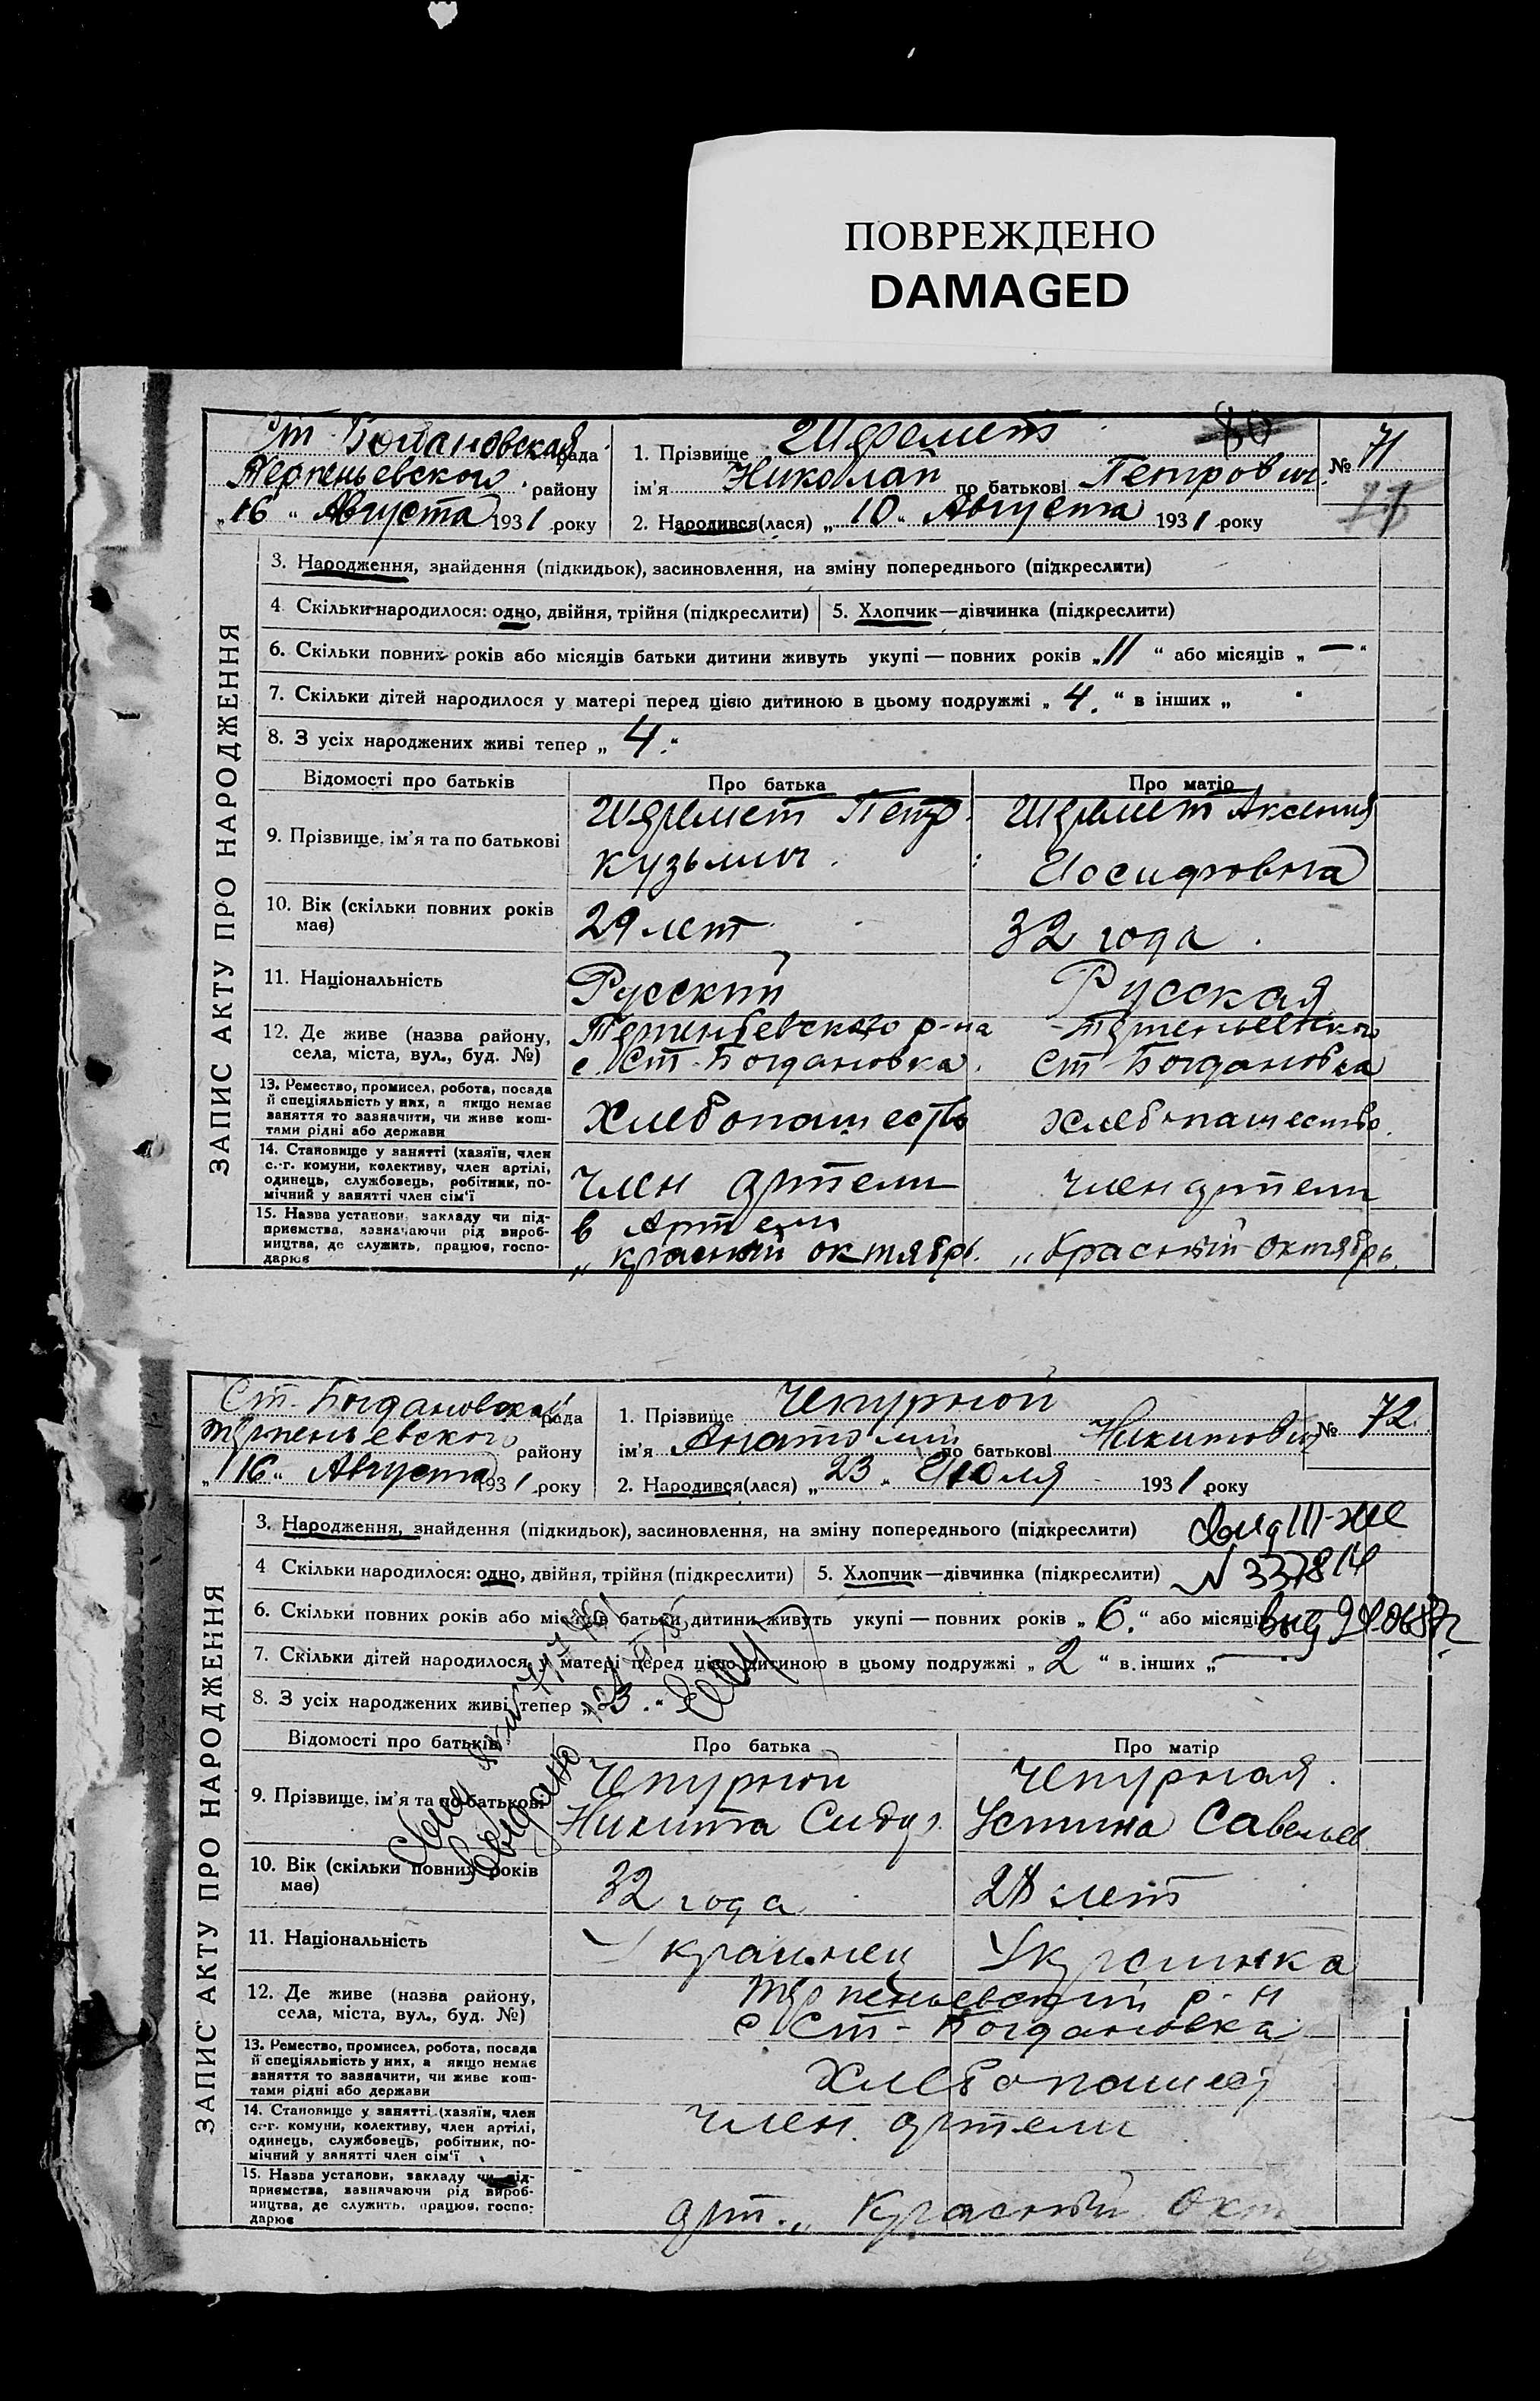 ПОВРЕЖДЕНО
DAMAGED
Ст. Богдановская рада
Терпеньевского району
„16“ Августа 1931 року
1. Прізвище Шеремет
ім'я Николай по батькові Петрович
2. Народився(лася) „10“ Августа 1931 року
80
№ 71
ЗАПИС АКТУ ПРО НАРОДЖЕННЯ
3. Народження, знайдення (підкидьок), засиновлення, на зміну попереднього (підкреслити)
4 Скільки народилося: одно, двійня, трійня (підкреслити) 5. Хлопчик—дівчинка (підкреслити)
6. Скільки повних років або місяців батьки дитини живуть укупі — повних років „11“ або місяців „—“
7. Скільки дітей народилося у матері перед цією дитиною в цьому подружжі „4.“ в інших „ “
8. З усіх народжених живі тепер „4.“
Відомості про батьків Про батька Про матір
9. Прізвище, ім'я та по батькові
Шеремет Петр Кузьмич.
Шеремет Аксения Иосифовна
10. Вік (скільки повних років має)
29 лет
32 года.
11. Національність
Русский
Русская
12. Де живе (назва району, села, міста, вул., буд. №)
Терпеньевского р-на
с. Ст-Богдановка.
Терпеньевского
Ст-Богдановка
13. Ремество, промисел, робота, посада
й спеціяльність у них, а якщо немає
заняття то зазначити, чи живе кош-
тами рідні або держави
Хлебопашество
хлебопашество.
14. Становище у занятті (хазяїн, член
с.-г. комуни, колективу, член артілі,
одинець, службовець, робітник, по-
мічний у занятті член сім'ї
член артели
член артели
15. Назва установи, закладу чи під-
приємства, зазначаючи рід вироб-
ництва, де служить, працює, госпо-
дарює
в Артели
„Красный октябрь.
„Красный Октябрь.
Ст-Богдановской рада
Терпеньевского району
„16“ Августа 1931 року
1. Прізвище Чепурной
ім'я Анатолий по батькові Никитович
2. Народився(лася) „23“ Июля 1931 року
№ 72.
ЗАПИС АКТУ ПРО НАРОДЖЕННЯ
3. Народження, знайдення (підкидьок), засиновлення, на зміну попереднього (підкреслити)
4 Скільки народилося: одно, двійня, трійня (підкреслити) 5. Хлопчик—дівчинка (підкреслити)
6. Скільки повних років або місяців батьки дитини живуть укупі — повних років „6.“ або місяців
7. Скільки дітей народилося у матері перед цією дитиною в цьому подружжі „2“ в інших „—
8. З усіх народжених живі тепер „3.“
Відомості про батьків Про батька Про матір
9. Прізвище, ім'я та по батькові
Чепурной
Никита Сидор.
Чепурная.
Устина Савельев
10. Вік (скільки повних років має)
32 года
28 лет
11. Національність
Украинец
Украинка
12. Де живе (назва району, села, міста, вул., буд. №)
Терпеньевский р-н
с Ст-Богдановка
13. Ремество, промисел, робота, посада
й спеціяльність у них, а якщо немає
заняття то зазначити, чи живе кош-
тами рідні або держави
Хлебопашес
14. Становище у занятті (хазяїн, член
с.-г. комуни, колективу, член артілі,
одинець, службовець, робітник, по-
мічний у занятті член сім'ї
член артели
15. Назва установи, закладу чи під-
приємства, зазначаючи рід вироб-
ництва, де служить, працює, госпо-
дарює
арт. „Красный Окт